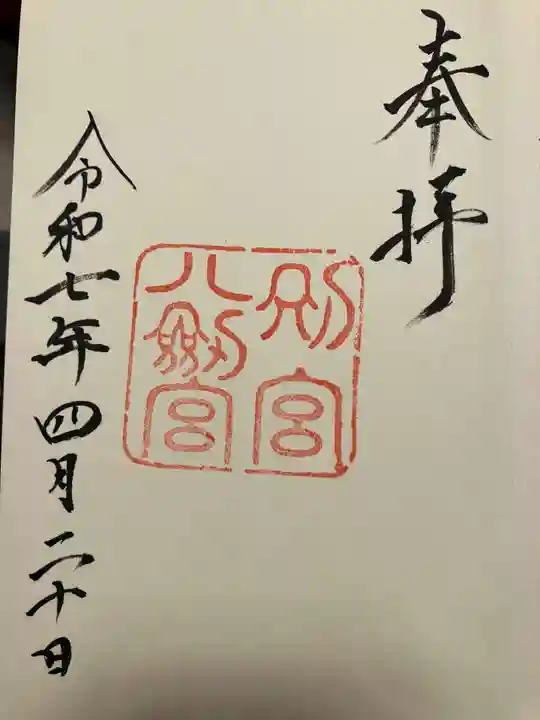 奉拝
別宮
八剱宮
令和七年四月二十日